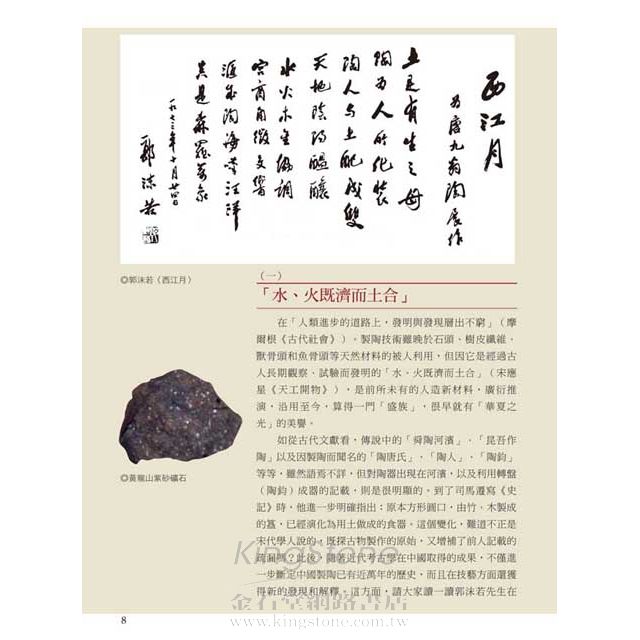 西江月
为唐九翁陶展作
土是有生之母
陶为人所化裝
陶人与土配成雙
天地陰陽醞釀
水火木金協調
宮商角徵交響
滙成陶海歎汪洋
真是森羅萬象
一九七三年十月廿四日
郭沫若
◎郭沫若〈西江月〉
(一)
「水、火既濟而土合」
在「人類進步的道路上，發明與發現層出不窮」（摩
爾根《古代社會》）。製陶技術雖晚於石頭、樹皮纖維、
獸骨頭和魚骨頭等天然材料的被人利用，但因它是經過古
人長期觀察、試驗而發明的「水、火既濟而土合」（宋應
星《天工開物》），是前所未有的人造新材料，廣衍推
演，沿用至今，算得一門「盛族」，很早就有「華夏之
光」的美譽。
◎黃龍山紫砂礦石
如從古代文獻看，傳說中的「舜陶河濱」、「昆吾作
陶」以及因製陶而聞名的「陶唐氏」、「陶人」、「陶鈞」
等等，雖然語焉不詳，但對陶器出現在河濱，以及利用轉盤
（陶鈞）成器的記載，則是很明顯的。到了司馬遷寫《史
記》時，他進一步明確指出：原本方形圓口，由竹、木製成
的簋，已經演化為用土做成的食器。這個變化，難道不正是
宋代學人說的，既探古物製作的原始，又增補了前人記載的
疏漏嗎？此後，隨著近代考古學在中國取得的成果，不僅進
一步斷定中國製陶已有近萬年的歷史，而且在技藝方面還獲
得新的發現和解釋。這方面，請大家讀一讀郭沫若先生在
KingStone
金石堂網路書店
www.kingstone.com.tw
8